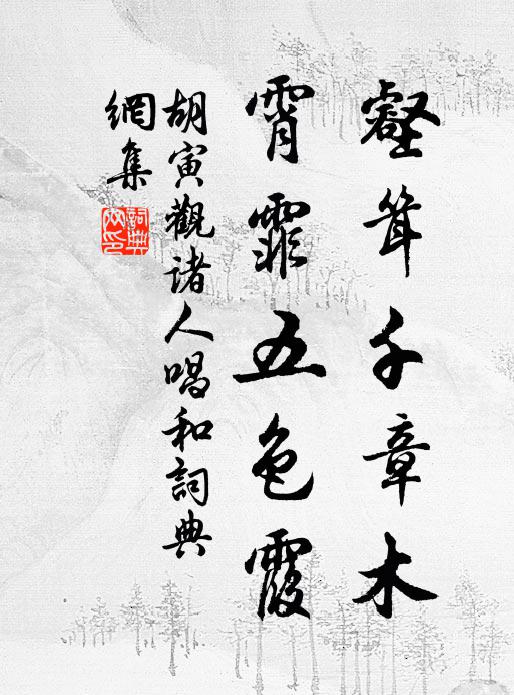 壑聳千章木
霄霏五色霞
胡寅觀諸人唱和詞典
網集
詞典
网印